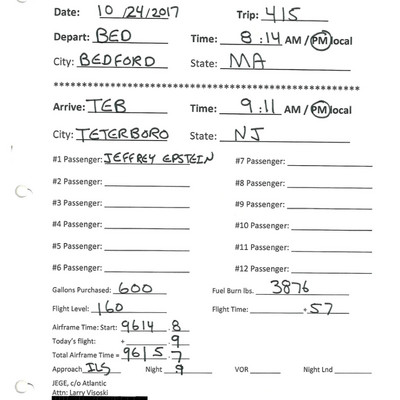 Date: 10/24/2017 Trip: 415
Depart: BED Time: 8:14 AM / PM local
City: BEDFORD State: MA
************************************************************
Arrive: TEB Time: 9:11 AM / PM local
City: TETERBORO State: NJ
#1 Passenger: JEFFREY EPSTEIN #7 Passenger:
#2 Passenger: #8 Passenger:
#3 Passenger: #9 Passenger:
#4 Passenger: #10 Passenger:
#5 Passenger: #11 Passenger:
#6 Passenger: #12 Passenger:
Gallons Purchased: 600 Fuel Burn lbs. 3876
Flight Level: 160 Flight Time: +57
Airframe Time: Start: 9614.8
Today's flight: + .9
Total Airframe Time = 9615.7
Approach ILS Night .9 VOR Night Lnd
JEGE, c/o Atlantic
Attn: Larry Visoski